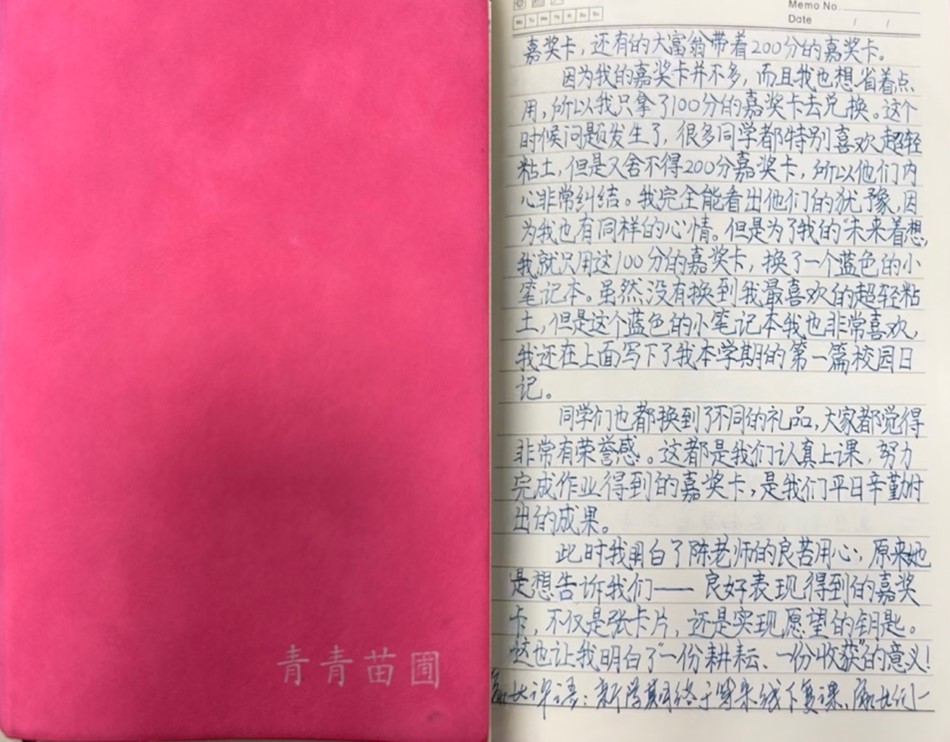 青青苗圃
Memo No.
Date / /
Mo Tu We Th Fr Sa Su
嘉奖卡，还有的大富翁带着200分的嘉奖卡。
因为我的嘉奖卡并不多，而且我也想省着点
用，所以我只拿了100分的嘉奖卡去兑换。这个
时候问题发生了，很多同学都特别喜欢超轻
粘土，但是又舍不得200分嘉奖卡，所以他们内
心非常纠结。我完全能看出他们的犹豫，因
为我也有同样的心情。但是为了我的"未来着想，
我就只用这100分的嘉奖卡，换了一个蓝色的小
笔记本。虽然没有换到我最喜欢的超轻粘
土，但是这个蓝色的小笔记本我也非常喜欢，
我还在上面写下了我本学期的第一篇校园日
记。
同学们也都换到了不同的礼品，大家都觉得
非常有荣誉感。这都是我们认真上课，努力
完成作业得到的嘉奖卡，是我们平日辛勤付
出的成果。
此时我明白了陈老师的良苦用心，原来她
是想告诉我们——良好表现得到的嘉奖
卡，不仅是张卡片，还是实现愿望的钥匙。
这也让我明白了"一份耕耘、一份收获"的意义！
家长评语：新学期终于迎来线下复课，家长们一